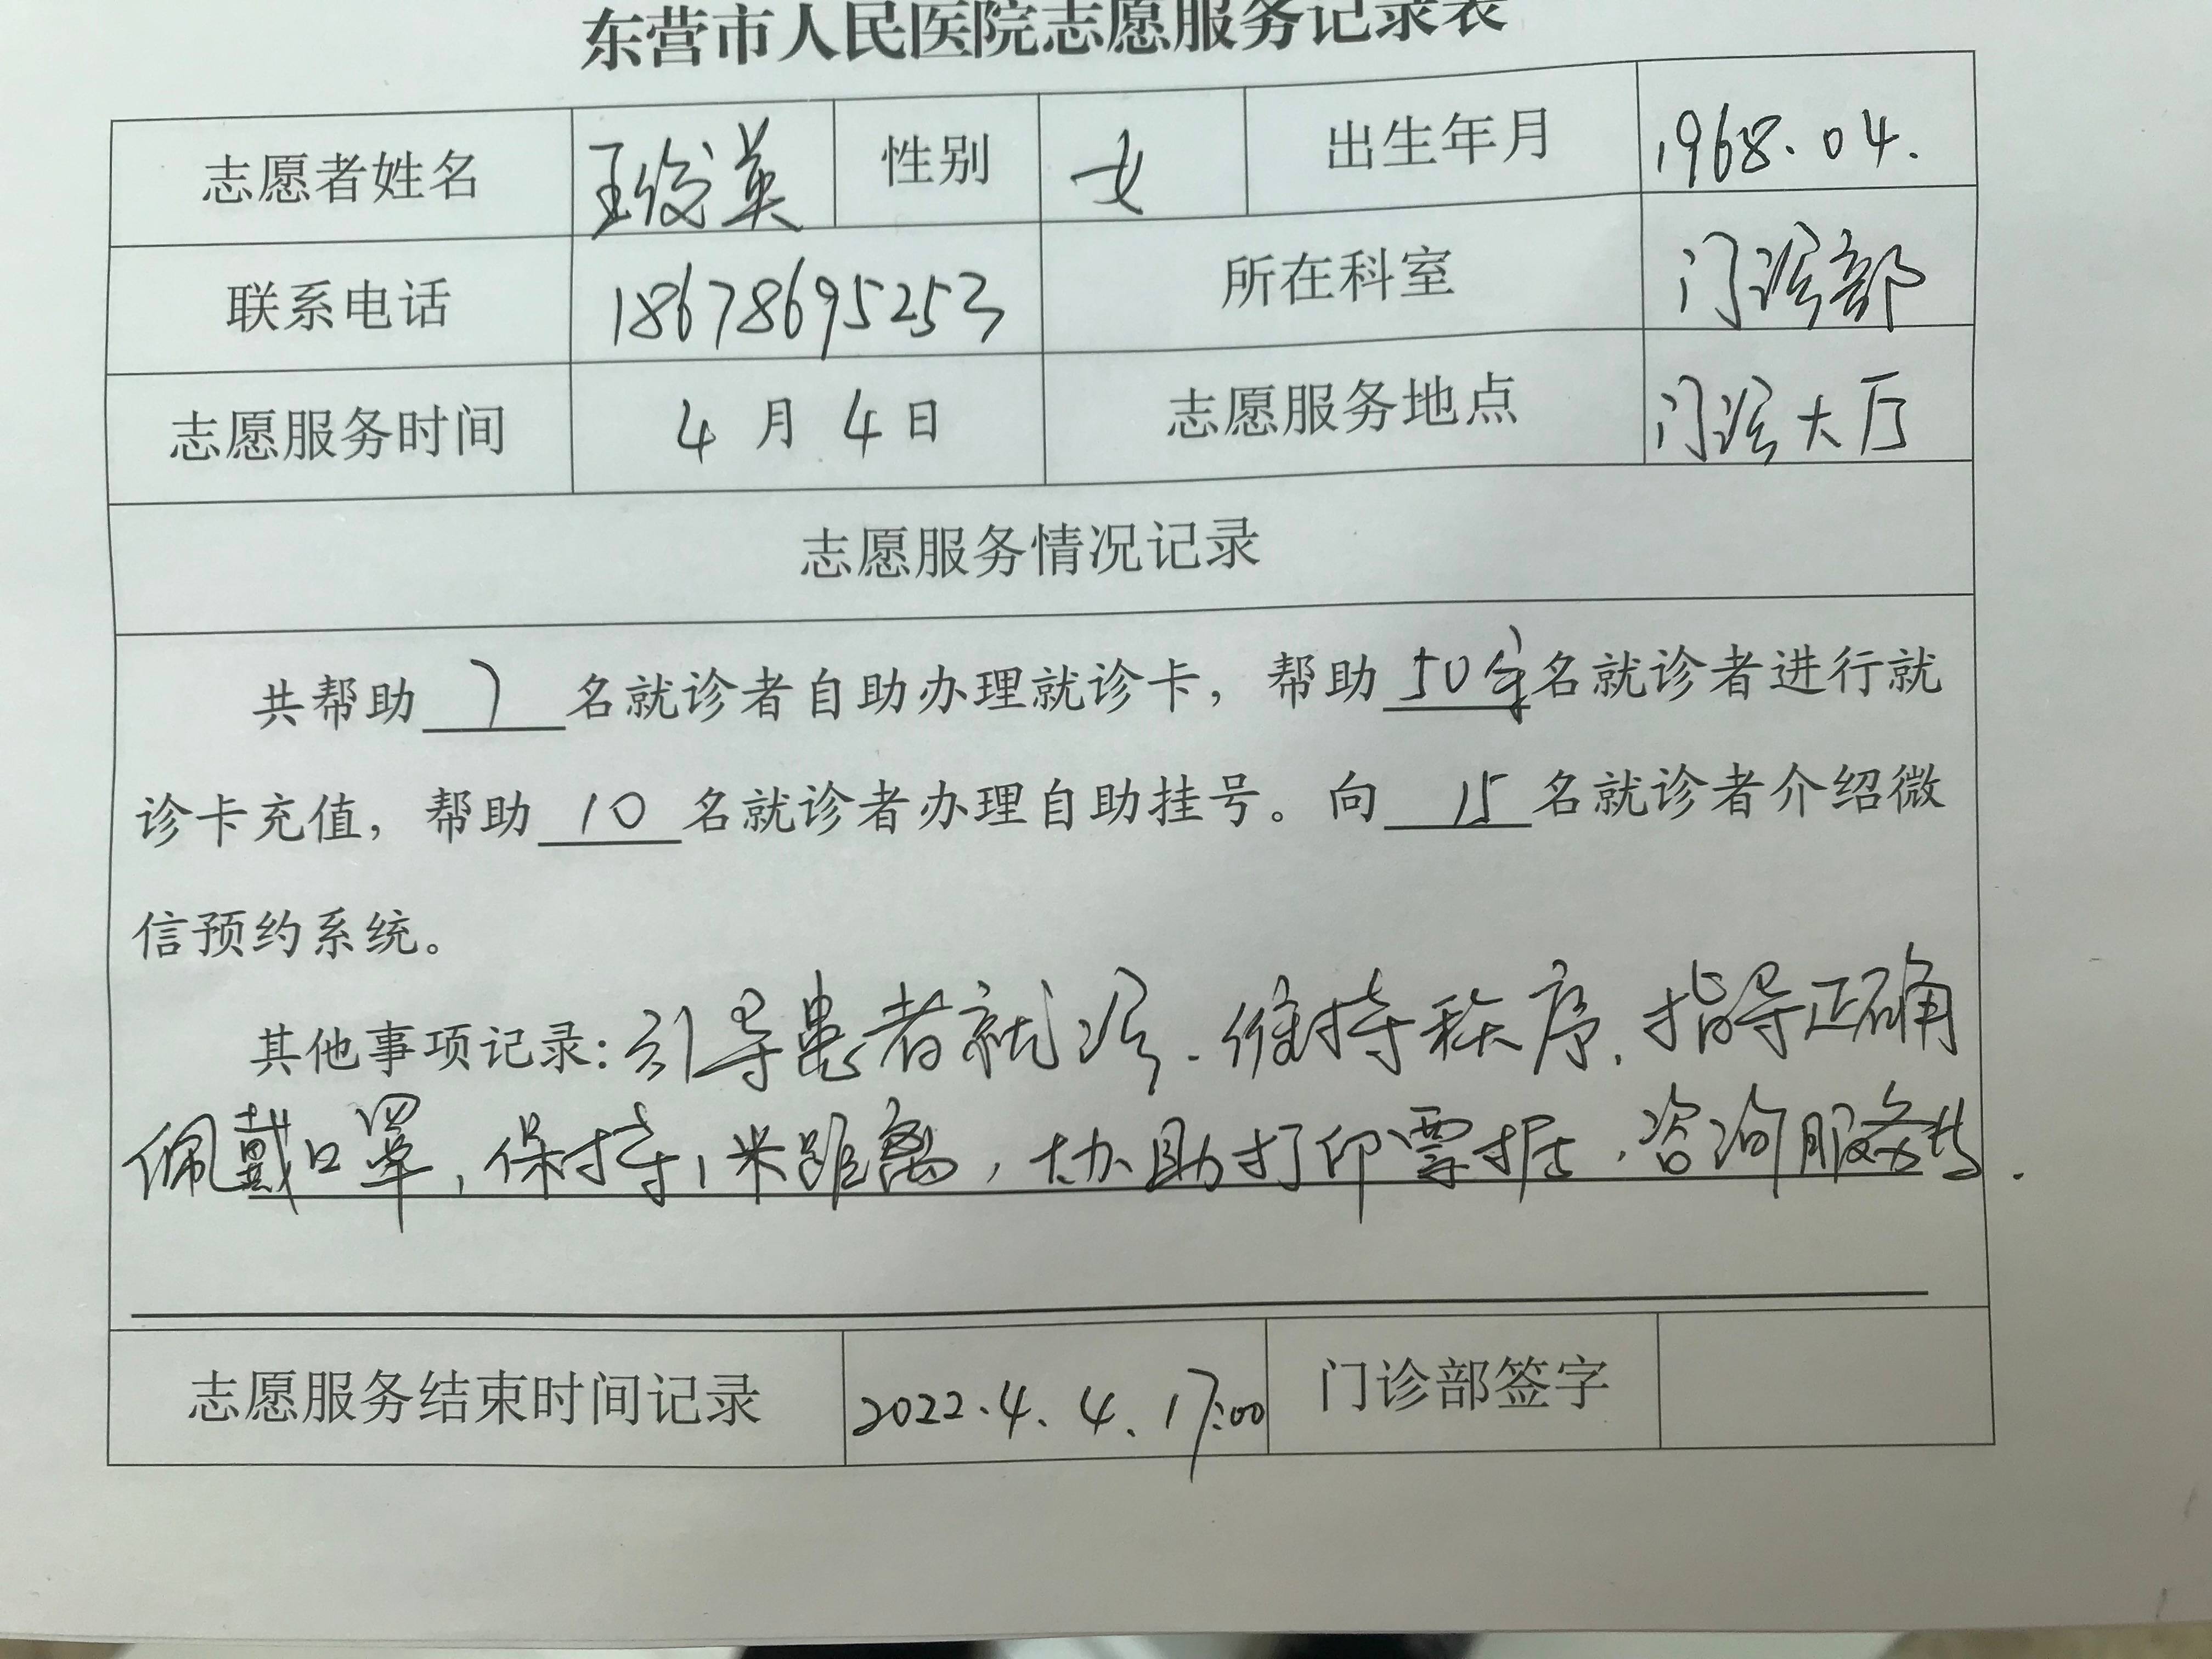 东营市人民医院志愿服务记录表
志愿者姓名 王俊英 性别 女 出生年月 1968.04.
联系电话 18678695253 所在科室 门诊部
志愿服务时间 4月4日 志愿服务地点 门诊大厅
志愿服务情况记录
共帮助 7 名就诊者自助办理就诊卡，帮助 50余 名就诊者进行就
诊卡充值，帮助 10 名就诊者办理自助挂号。向 15 名就诊者介绍微
信预约系统。
其他事项记录：引导患者就诊、维持秩序、指导正确
佩戴口罩，保持1米距离，协助打印票据、咨询服务等.
志愿服务结束时间记录 2022.4.4.17:00 门诊部签字